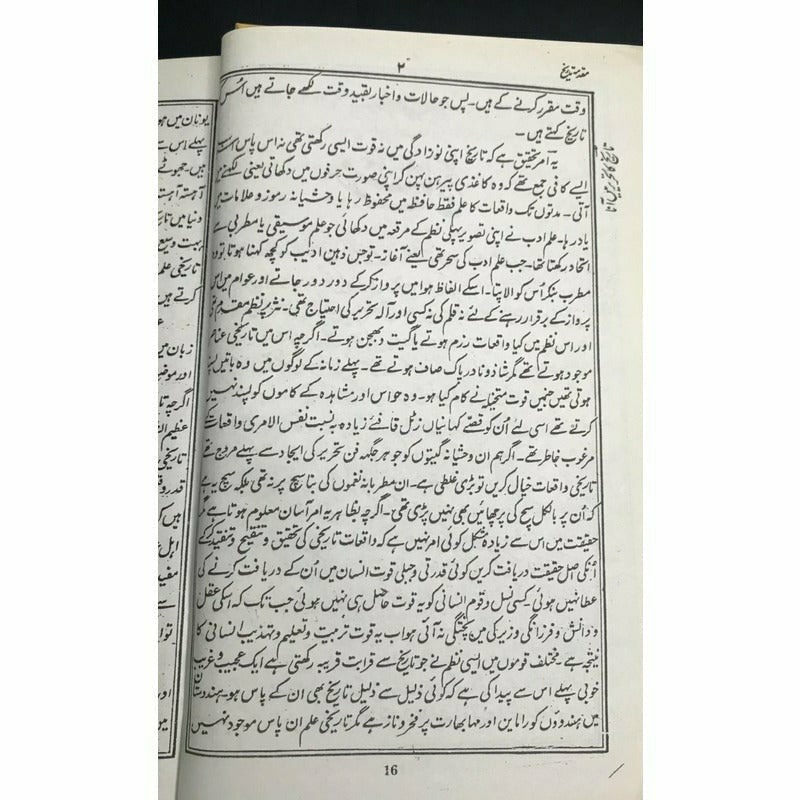 مقدمہ تاریخ
۲
وقت مقرر کرنے کے ہیں۔ پس جو حالات و اخبار بقید وقت لکھے جاتے ہیں اُس کو
تاریخ کہتے ہیں۔
یہ امر تحقیق ہے کہ تاریخ اپنی نوزادگی میں نہ قوت ایسی رکھتی تھی نہ اس پاس
ایسے کافی جمع تھے کہ وہ کاغذی پیرہن پہن کر اپنی صورت حرفوں میں دکھاتی یعنی لکھنے میں
آتی۔ مدتوں تک واقعات کا علم فقط حافظہ میں محفوظ رہا یا وحشیانہ رموز و علامات میں
یاد رہا۔ علم ادب نے اپنی تصویر پہلی نظم کے مرقعہ میں دکھائی جو علم موسیقی یا مطربی سے
اتحاد رکھتا تھا۔ جب علم ادب کی سحر تھی یعنے آغاز تھا تو جس ذہین ادیب کو کچھ کہنا ہوتا تو وہ
مطرب بنکر اُس کو الاپتا۔ اسکے الفاظ ہوا میں پرواز کر کے دور دور جاتے اور عوام میں اس
پرواز کے برقرار رہنے کے لئے نہ قلم کی نہ کسی اور آلہ تحریر کی احتیاج تھی۔ نثر پر نظم مقدم تھی
اور اس نظم میں کیا واقعات رزم ہوتے یا گیت و بھجن ہوتے۔ اگرچہ اس میں تاریخی عناصر
موجود ہوتے تھے مگر شاذ و نادر پاک صاف ہوتے تھے۔ پہلے زمانہ کے لوگوں میں وہ باتیں پسند
ہوتی تھیں جنمیں قوت متخیلہ نے کام کیا ہو۔ وہ حواس اور مشاہدہ کے کاموں کو پسند نہیں
کرتے تھے اسی لئے اُن کو قصے کہانیاں زٹل قافئے زیادہ بہ نسبت نفس الامری واقعات کے
مرغوب خاطر تھے۔ اگر ہم ان وحشیانہ گیتوں کو جو ہر جگہ فن تحریر کی ایجاد سے پہلے مروج تھے
تاریخی واقعات خیال کریں تو بڑی غلطی ہے۔ ان مطربانہ نغموں کی بنا سچ پر نہ تھی بلکہ سچ یہ ہے
کہ اُن پر بالکل سچ کی پرچھائیں بھی نہیں پڑی تھی۔ اگرچہ بظاہر یہ امر آسان معلوم ہوتا ہے مگر
حقیقت میں اس سے زیادہ مشکل کوئی امر نہیں ہے کہ واقعات تاریخی کی تحقیق و تنقیح و تنقید کر کے
اُنکی اصل حقیقت دریافت کریں کوئی قدرتی و جبلی قوت انسان میں اُن کے دریافت کرنے کی
عطا نہیں ہوئی۔ کسی نسل و قوم انسانی کو یہ قوت حاصل ہی نہیں ہوئی جب تک کہ اسکی عقل
و دانش و فرزانگی و زیرکی میں پختگی نہ آئی ہو اب یہ قوت تربیت و تعلیم و تہذیب انسانی کا
نتیجہ ہے۔ مختلف قوموں میں ایسی نظم نے جو تاریخ سے قرابت قریبہ رکھتی ہے ایک عجیب و غریب
خوبی پہلے اس سے پیدا کی ہے کہ کوئی ذلیل سے ذلیل تاریخ بھی ان کے پاس ہو۔ ہندوستان
میں ہندوؤں کو راماین اور مہابھارت پر فخر و ناز ہے مگر تاریخی علم ان پاس موجود نہیں
16
یونان میں
پہلے اس سے
ہیں۔ جھوٹے
آہستہ آہستہ
دنیا میں
بہت وسیع
تاریخی علم
کرتے ہیں
زبان میں
اور
اگرچہ
تاریخی
ہیں کہ
اہل
سے
اور